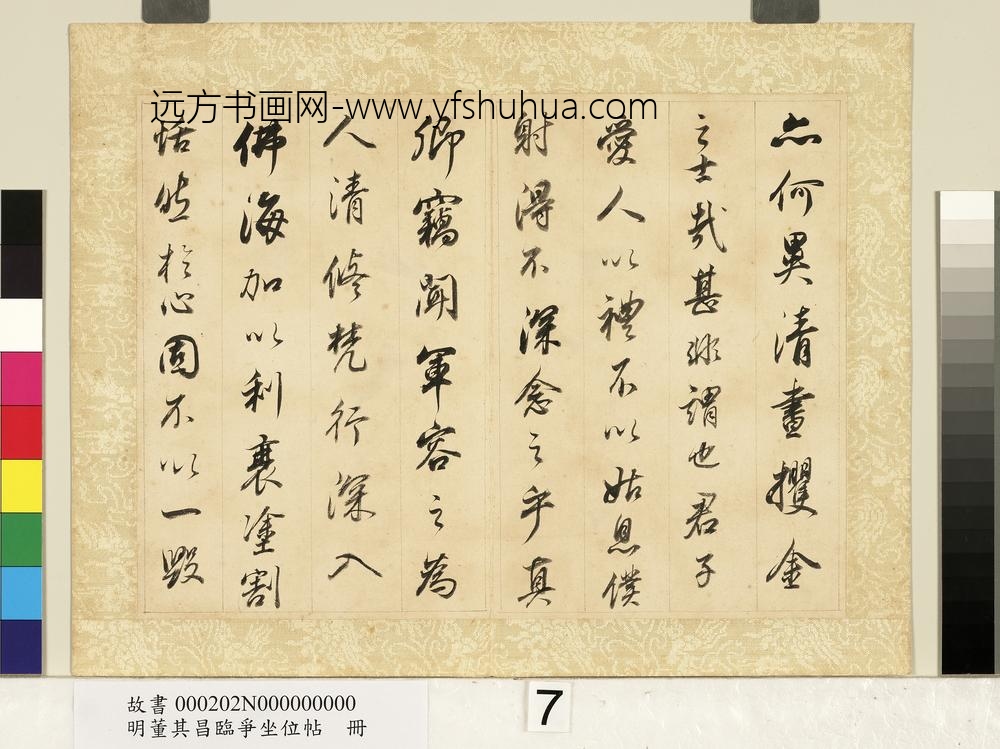 远方书画网-www.yfshuhua.com
亦何異清晝攫金
之士哉甚非謂也君子
愛人以禮不以姑息僕
射得不深念之乎真
卿竊聞軍容之為
人清修梵行深入
佛海加以利衰塗割
恬然於心固不以一毀
故書 000202N000000000
明董其昌臨爭坐位帖 冊
7